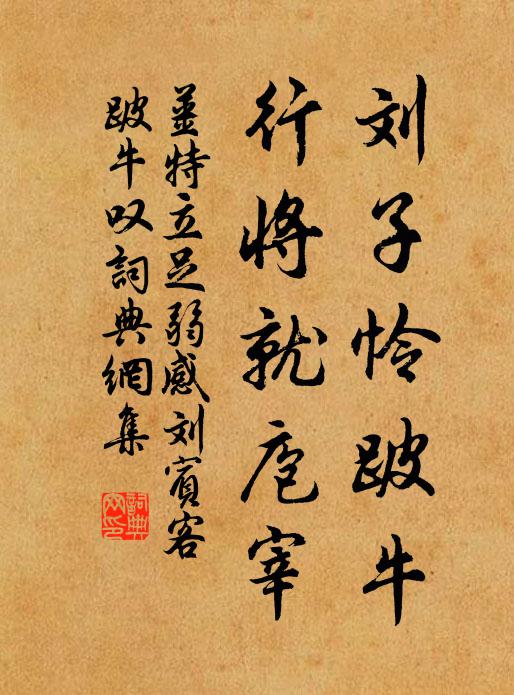 刘子怜跛牛
行将就庖宰
姜特立足弱感刘賓客
跛牛叹詞典網集
詞典網印